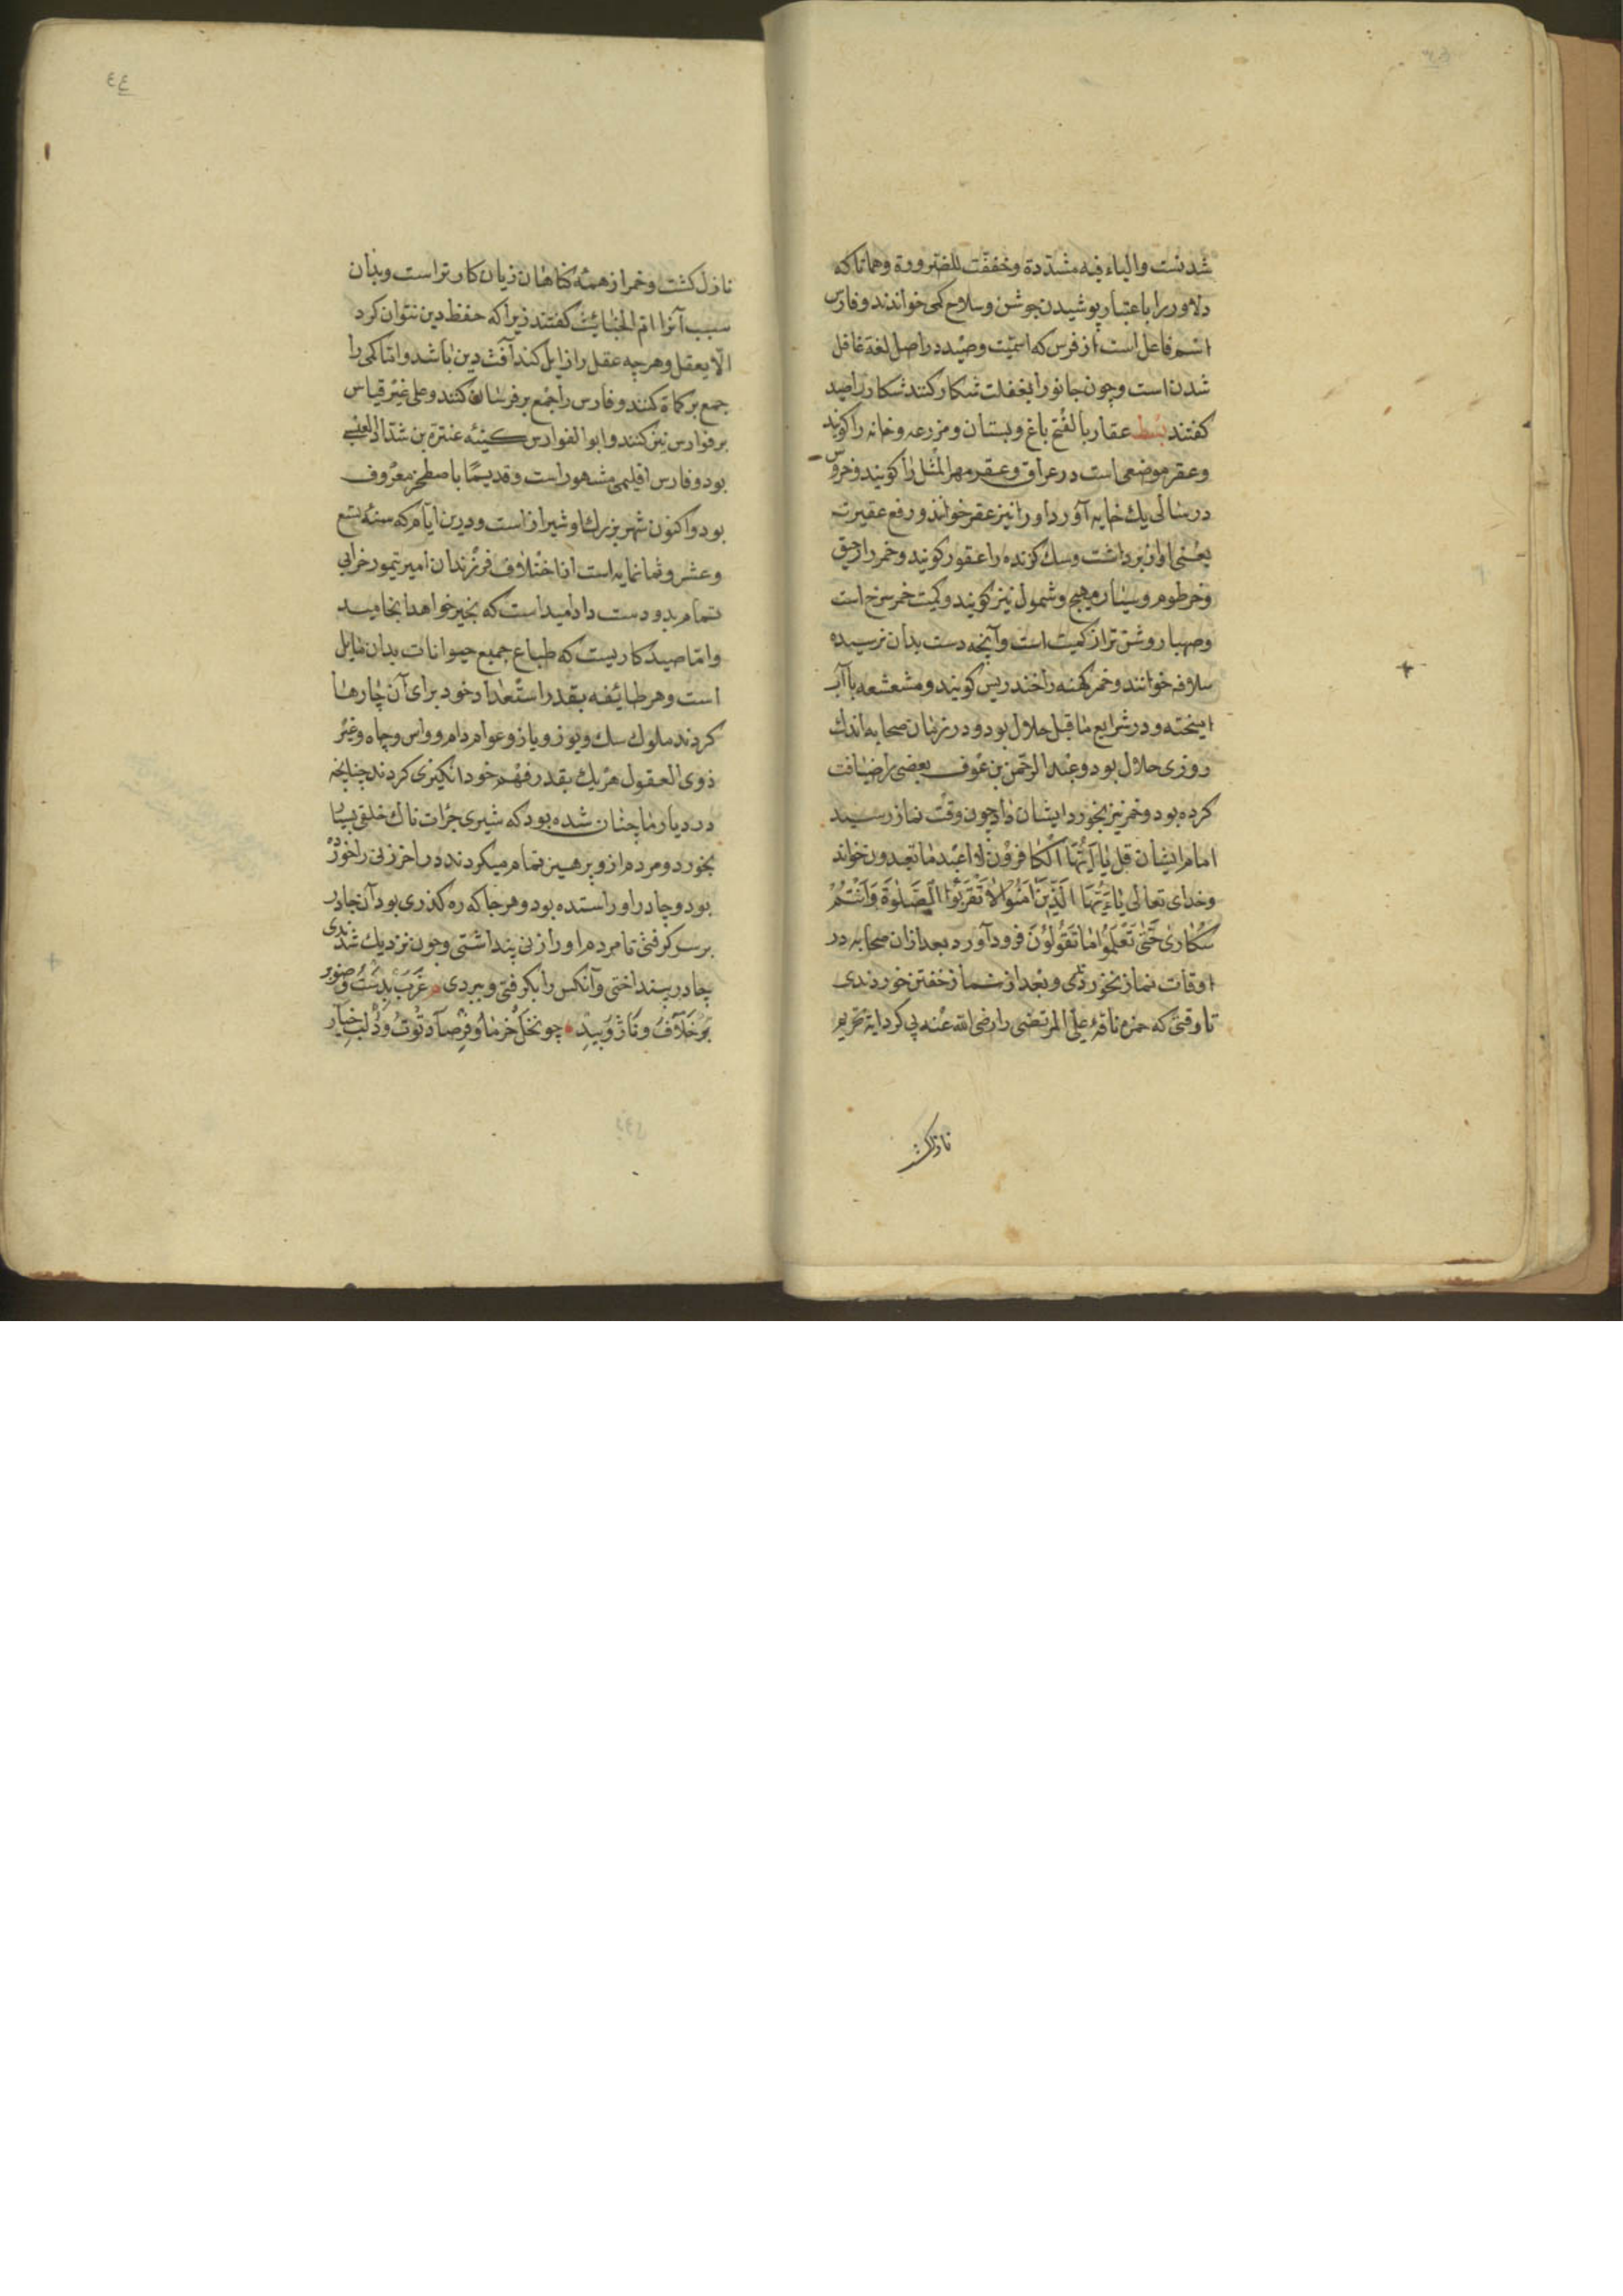 شدنست والیاء فیه مشدّدة وخففت للضرورة وهمانا که
دلاور را باعتبار پوشیدن جوشن وسلاح کمی خواندند وفارس
اسم فاعل است از فرس که اسمیت وصید در اصل لغة غافل
شدن است وچون جانور را بغفلت شکار کنند شکار را صید
کفتند بسط عقار بالفتح باغ وبستان ومزرعه وخانه را کویند
وعقر موضعی است در عراق وعقر مهر المثل را کویند وخروس
در سالی یك خایه آورد او را نیز عقر خوانند ورفع عقیرته
یعنی اواز برداشت وسك کزنده را عقور کویند وخمر را رحیق
وخرطوم و شمول نیز کویند وکمیت خمر سرخ است
وصهبا روشن تر از کمیت است وآنچه دست بدان نرسیده
سلافه خوانند وخمر کهنه را خندریس کویند ومشعشعه باآب
امیخته ودر شرایع ماقبل حلال بود ودر زمان صحابه اندك
روزی حلال بود وعبد الرحمن بن عوف بعضی را ضیافت
کرده بود وخمر نیز بخورد ایشان داد چون وقت نماز رسید
امام ایشان قل یا ایّها الکافرون لا اعبد ما تعبدون خواند
وخدای تعالی یاءَیّها الَّذِینَ اٰمَنُوا لاٰ تَقْرَبُوا الصَّلوٰةَ وَاَنْتُمْ
سُکاریٰ حَتّٰی تَعْلَمُوا ماٰ تَقُولُونَ فرود آورد بعد ازان صحابه در
اوقات نماز نخوردندی وبعد از نماز خفتن خوردندی
تا وقتی که حمزه ناقهٔ علی المرتضی را رضی الله عنه پی کرد ایة تحریم
نازل کشت
٤٤
نازل کشت وخمر از همه کناهان زیان کارتر است وبدان
سبب آنرا امّ الخبایث کفتند زیرا که حفظ دین نتوان کرد
الّا بعقل وهرچه عقل را زایل کند آفت دین باشد وامّا کمی را
جمع بر کماة کنند وفارس را جمع بر فرسان کنند وعلی غیر قیاس
بر فوارس نیز کنند وابو الفوارس کنیه عنترة بن شداد العبسی
بود وفارس اقلیمی مشهور است وقدیمًا باصطخر معروف
بود واکنون شهر بزرك او شیراز است ودرین ایام که سنه تسع
وعشر وثمانمایه است از اختلاف فرزندان امیر تیمور خرابی
تمام بدو دست داد امید است که بخیر خواهد انجامید
وامّا صید کاریست که طباع جمیع حیوانات بدان مایل
است وهر طایفه بقدر استعداد خود برای آن چارها
کردند ملوك سك ویوز وباز وعوام دام وواس وچاه وغیر
ذوی العقول هریك بقدر فهم خود انکیزی کردند چنانچه
در دیار ما چنان شده بود که شیری جرات ناك خلقی بسیار
بخورد ومردم ازو پرهیز تمام میکردند در اخر زنی را خورده
بود وچادر او را ستده بود وهر جا که ره کذری بود آن چادر
برسر کرفتی تا مردم او را زنی پنداشتی وچون نزدیك شدندی
چادر بینداختی وآنکس را بکرفتی وببردی غَرَبْ پِدَشْتُ وصنوبر
بُوَ خَلاٰفْ وَنَاژْ وَبیدْ چو نَخْلْ خُرْماٰ وَفِرْصاٰدْ تُوتُ وَدُلْبْ خِیاٰرْ